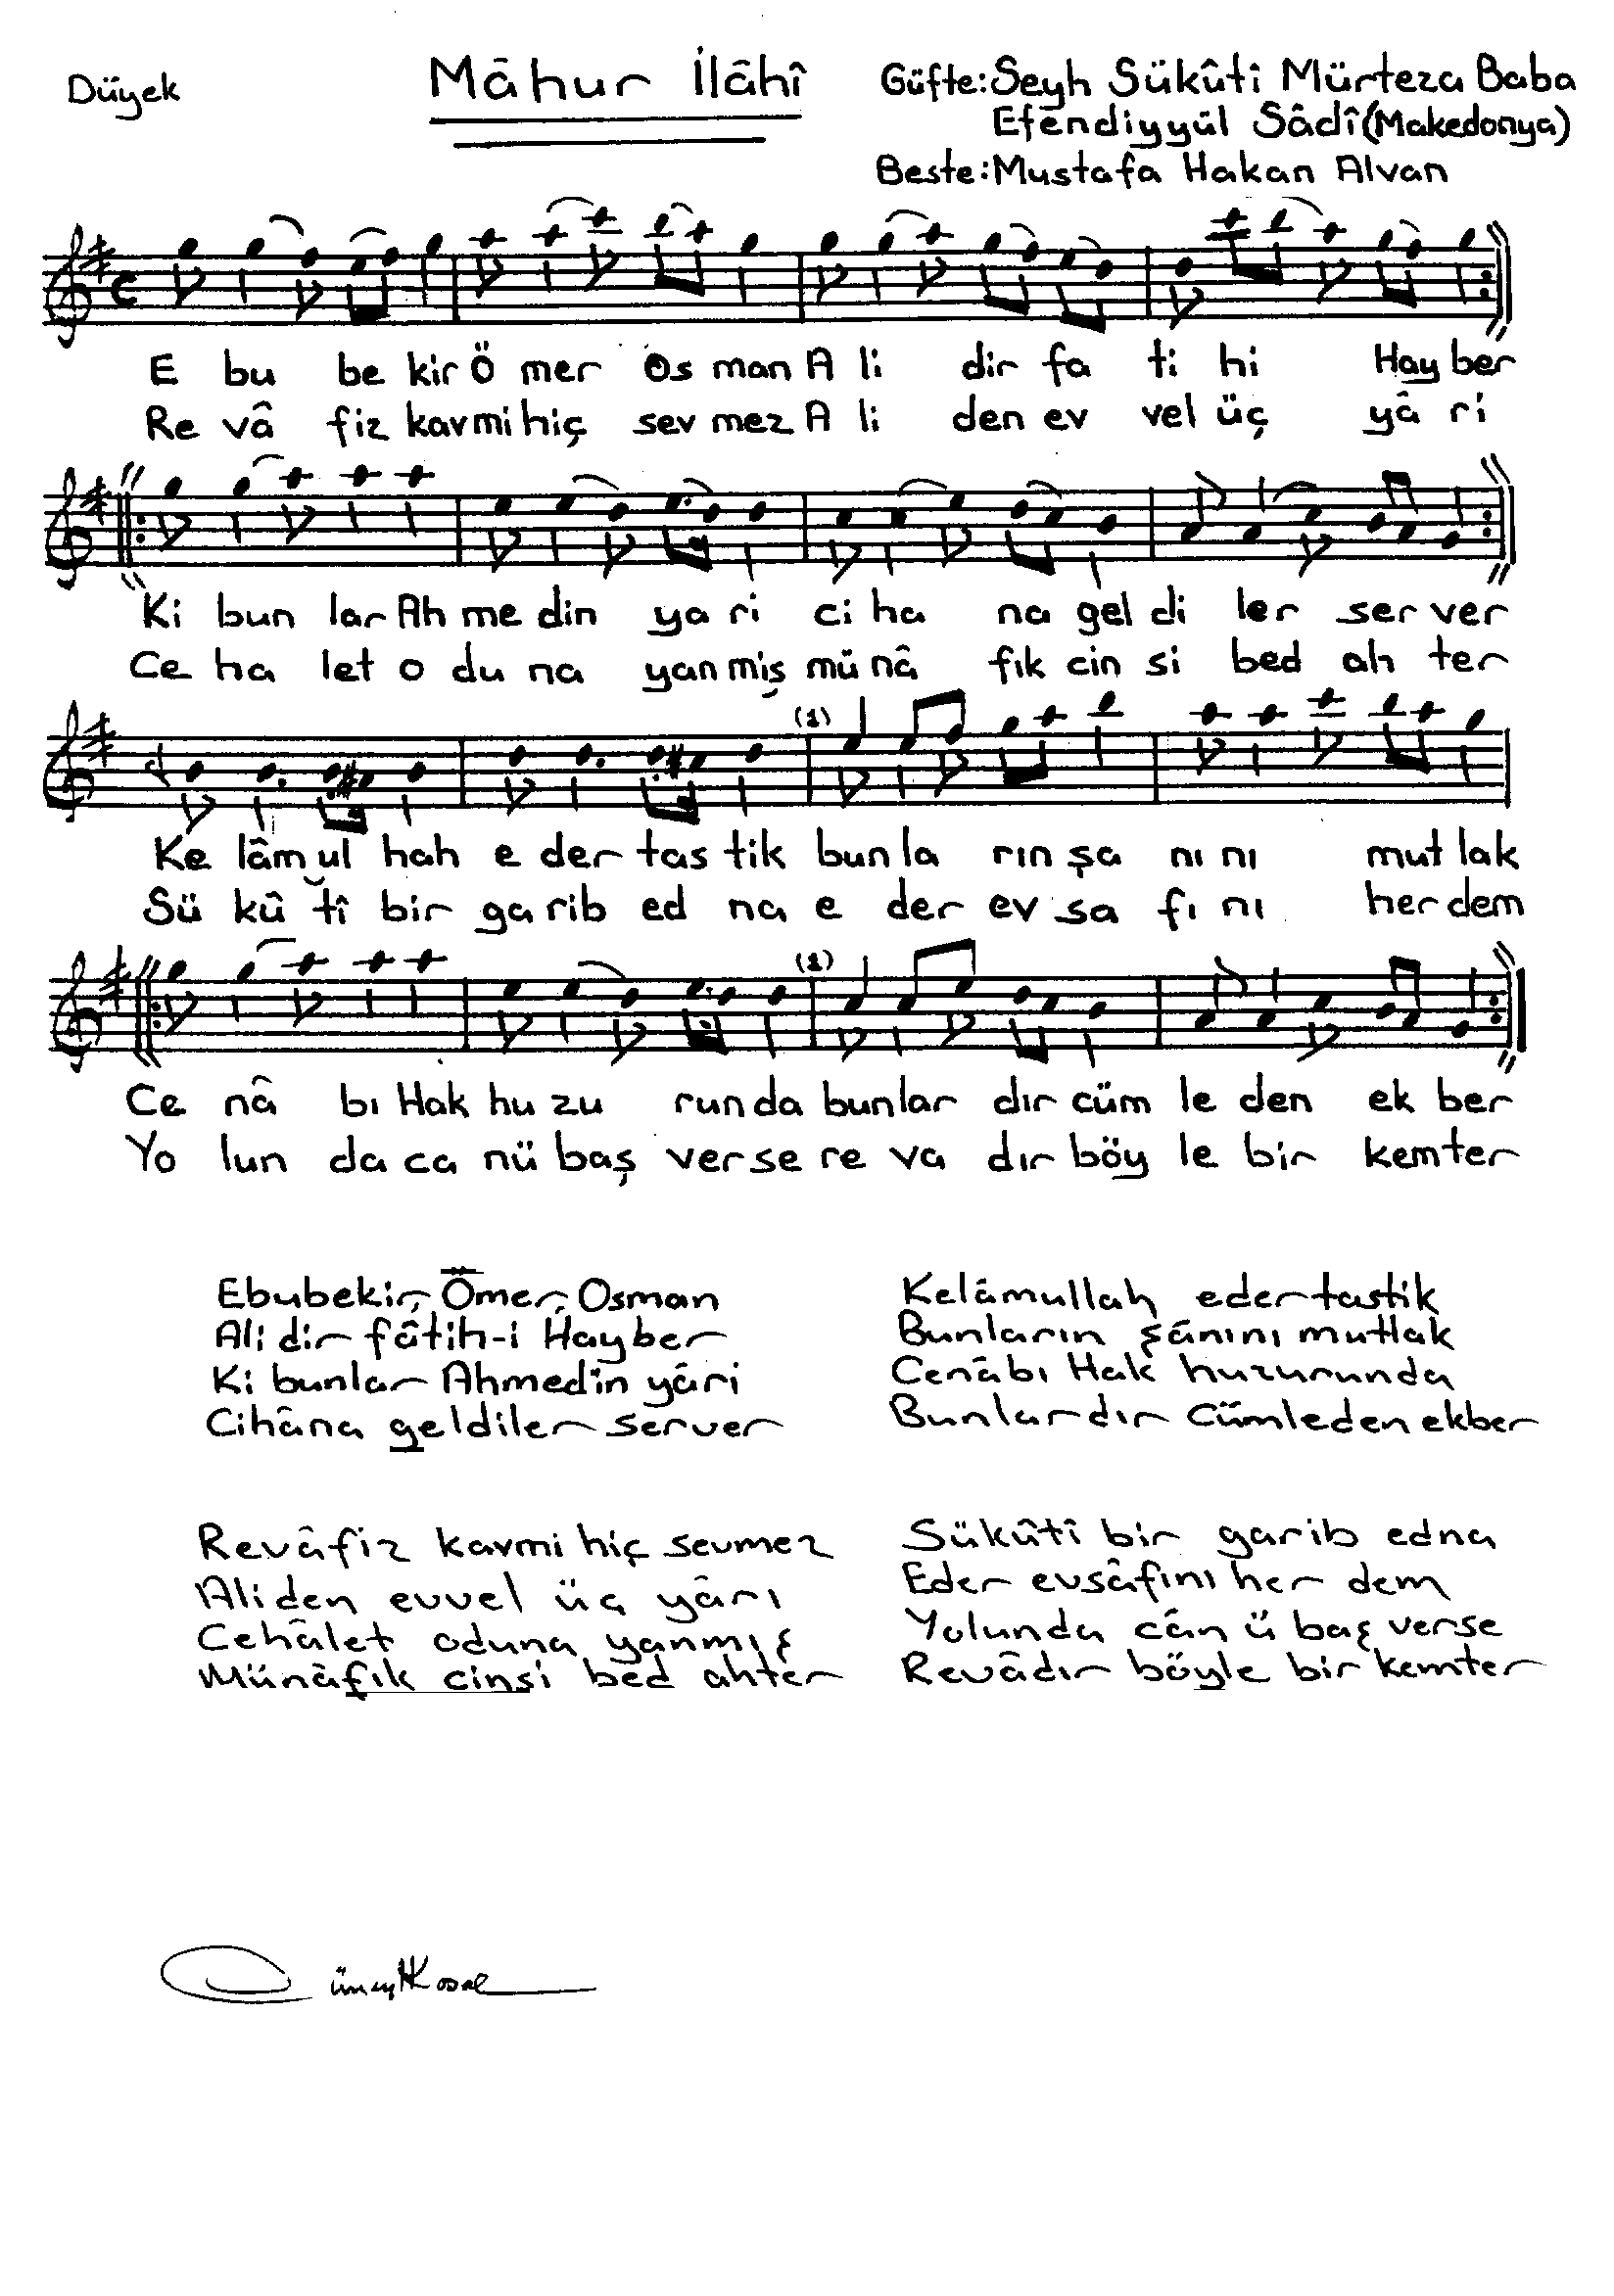 Düyek
Mâhur İlâhî
Güfte: Seyh Sükûtî Mürteza Baba
Efendiyyül Sâdî (Makedonya)
Beste: Mustafa Hakan Alvan
E bu be kir Ö mer Os man A li dir fa ti hi Hay ber
Re vâ fiz kavmi hiç sev mez A li den ev vel üç yâ ri
Ki bun lar Ah me din ya ri ci ha na gel di ler ser ver
Ce ha let o du na yan miş mü nâ fık cin si bed ah ter
(1)
Ke lâm ul hah e der tas tik bun la rın şa nı nı mut lak
Sü kû tî bir ga rib ed na e der ev sa fı nı her dem
(1)
Ce nâ bı Hak hu zu run da bun lar dır cüm le den ek ber
Yo lun da ca nü baş ver se re va dır böy le bir kem ter
Ebubekir, Ömer, Osman
Ali dir fâtih-i Hayber
Ki bunlar Ahmedin yâri
Cihâna geldiler server
Kelâmullah eder tastik
Bunların şânını mutlak
Cenâbı Hak huzurunda
Bunlardır Cümleden ekber
Revâfiz kavmi hiç sevmez
Aliden evvel üç yârı
Cehâlet oduna yanmış
Münâfık cinsi bed ahter
Sükûtî bir garib edna
Eder evsâfını her dem
Yolunda cân ü baş verse
Revâdır böyle bir kemter
Cüneyt Kosal